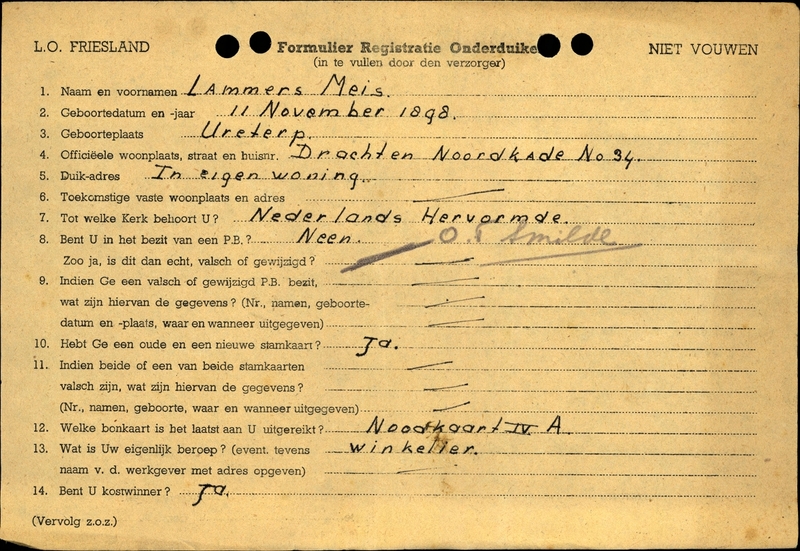 L.O. FRIESLAND Formulier Registratie Onderduike NIET VOUWEN
(in te vullen door den verzorger)
1. Naam en voornamen Lammers Meis.
2. Geboortedatum en -jaar 11 November 1898.
3. Geboorteplaats Ureterp.
4. Officiëele woonplaats, straat en huisnr. Drachten Noordkade No 34.
5. Duik-adres In eigen woning.
6. Toekomstige vaste woonplaats en adres
7. Tot welke Kerk behoort U? Nederlands Hervormde.
8. Bent U in het bezit van een P.B.? Neen. Smilde
Zoo ja, is dit dan echt, valsch of gewijzigd?
9. Indien Ge een valsch of gewijzigd P.B. bezit,
wat zijn hiervan de gegevens? (Nr., namen, geboorte-
datum en -plaats, waar en wanneer uitgegeven)
10. Hebt Ge een oude en een nieuwe stamkaart? Ja.
11. Indien beide of een van beide stamkaarten
valsch zijn, wat zijn hiervan de gegevens?
(Nr., namen, geboorte, waar en wanneer uitgegeven)
12. Welke bonkaart is het laatst aan U uitgereikt? Noodkaart IV A
13. Wat is Uw eigenlijk beroep? (event. tevens winkelier.
naam v. d. werkgever met adres opgeven)
14. Bent U kostwinner? Ja.
(Vervolg z.o.z.)